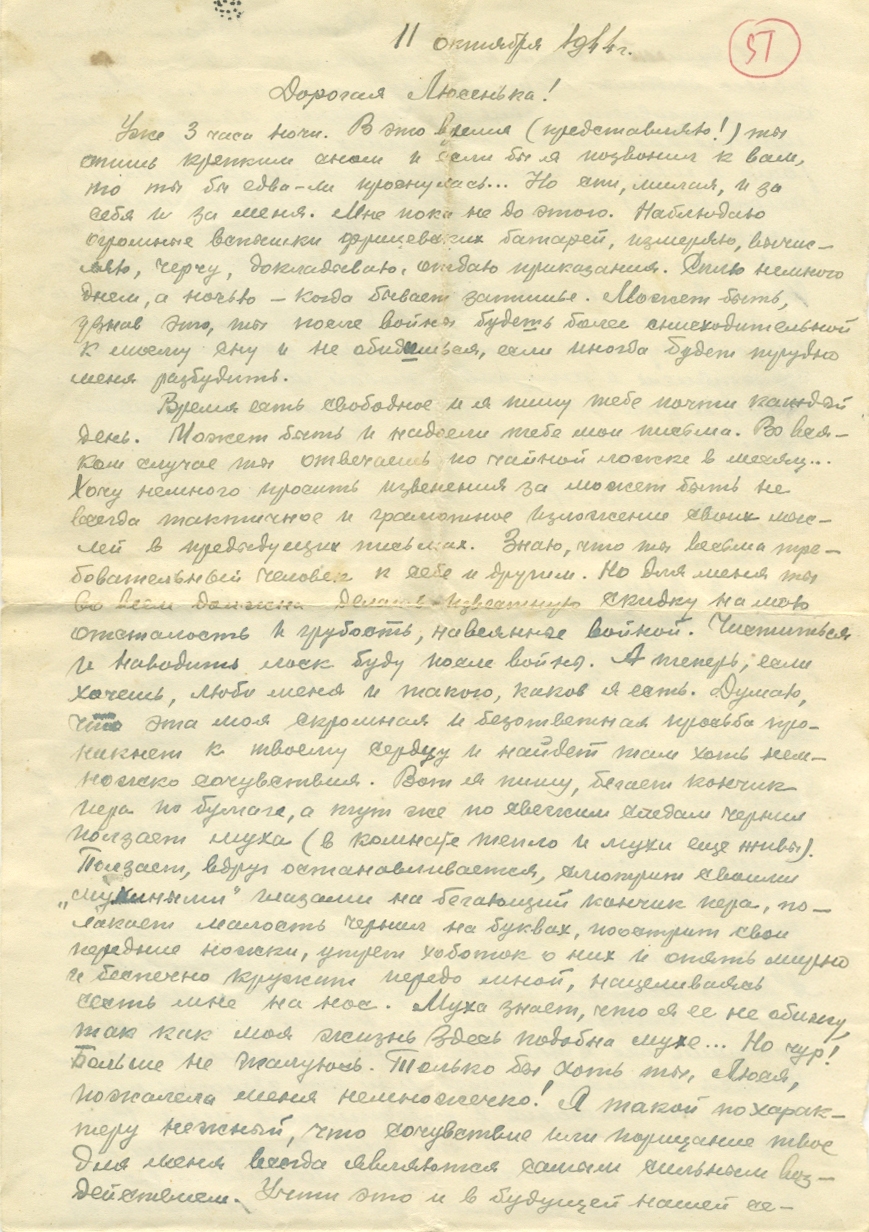 11 октября 1944г.
57
Дорогая Люсенька!
Уже 3 часа ночи. В это время (представляю!) ты
спишь крепким сном и если бы я позвонил к вам,
то ты бы едва-ли проснулась... Но спи, милая, и за
себя и за меня. Мне пока не до этого. Наблюдаю
огромные вспышки фрицевских батарей, измеряю, вычис-
ляю, черчу, докладываю, отдаю приказания. Сплю немного
днем, а ночью – когда бывает затишье. Может быть,
узнав это, ты после войны будешь более снисходительной
к моему сну и не обидишься, если иногда будет трудно
меня разбудить.
Время есть свободное и я пишу тебе почти каждый
день. Может быть и надоели тебе мои письма. Во вся-
ком случае ты отвечаешь по чайной ложке в месяц...
Хочу немного просить извенения за может быть не
всегда тактичное и грамотное изложение своих мыс-
лей в предыдущих письмах. Знаю, что ты весьма тре-
бовательный человек к себе и другим. Но для меня ты
во всем должна делать известную скидку на мою
отсталость и грубость, навеянное войной. Чиститься
и наводить лоск буду после войны. А теперь, если
хочешь, люби меня и такого, каков я есть. Думаю,
что эта моя скромная и безответная просьба про-
никнет к твоему сердцу и найдет там хоть нем-
ножко сочувствия. Вот я пишу, бегает кончик
пера по бумаге, а тут же по свежим следам чернил
ползает муха (в комнате тепло и мухи еще живы).
Ползает, вдруг останавливается, смотрит своими
„мухиными“ глазами на бегающий кончик пера, по-
лакает малость чернил на буквах, поострит свои
передние ножки, утрет хоботок о них и опять мирно
и беспечно кружит передо мной, нацеливаясь
сесть мне на нос. Муха знает, что я ее не обижу,
так как моя жизнь здесь подобна мухе... Но чур!
Больше не жалуюсь. Только бы хоть ты, Люся,
пожалела меня немножечко! Я такой по харак-
теру нежный, что сочувствие или порицание твое
для меня всегда являются самым сильным воз-
действием. Учти это и в будущей нашей се-